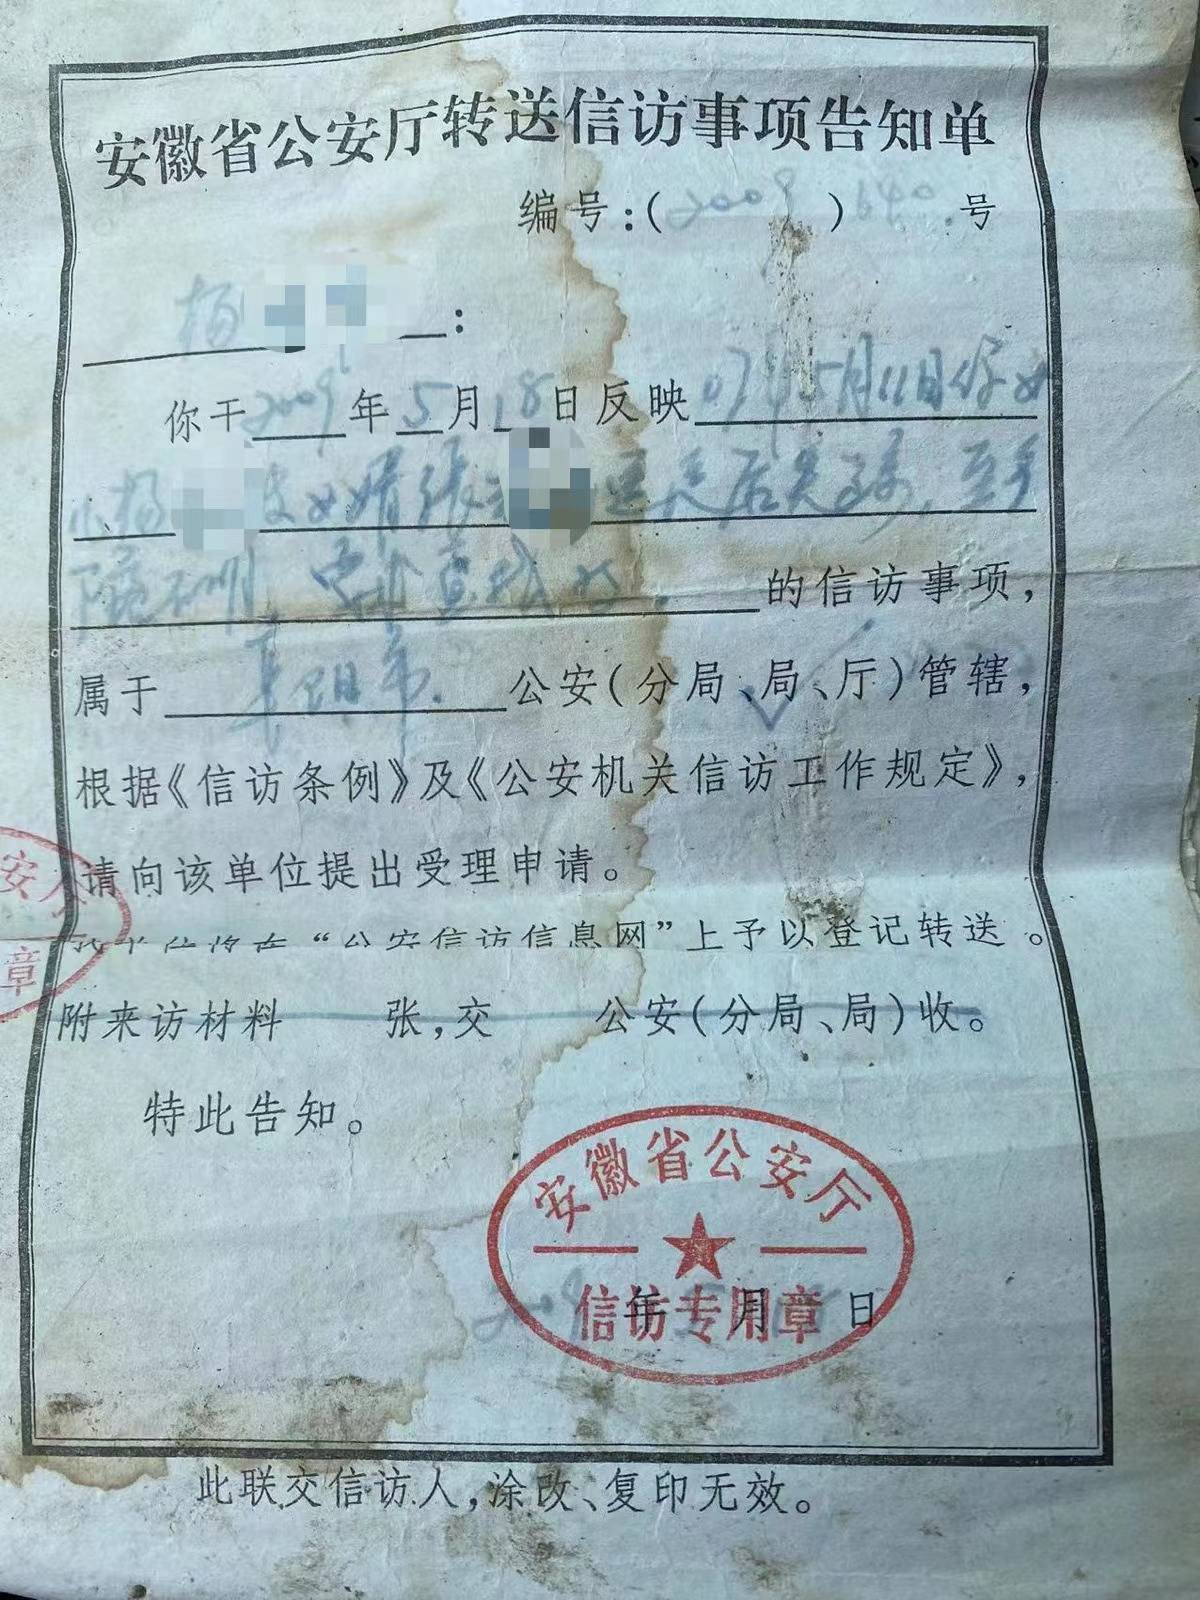 安徽省公安厅转送信访事项告知单
编号:(2009)640号
杨 :
你于2009年5月18日反映07年5月11日你女
儿杨 被女婿张 后失踪,至今
下落不明,要求查找的信访事项,
属于 市公安(分局、局、厅)管辖,
根据《信访条例》及《公安机关信访工作规定》,
请向该单位提出受理申请。
“公安信访信息网”上予以登记转送。
附来访材料 张,交 公安(分局、局)收。
特此告知。
安徽省公安厅
信访专用章
2009年 月 日
安厅
章
此联交信访人,涂改、复印无效。